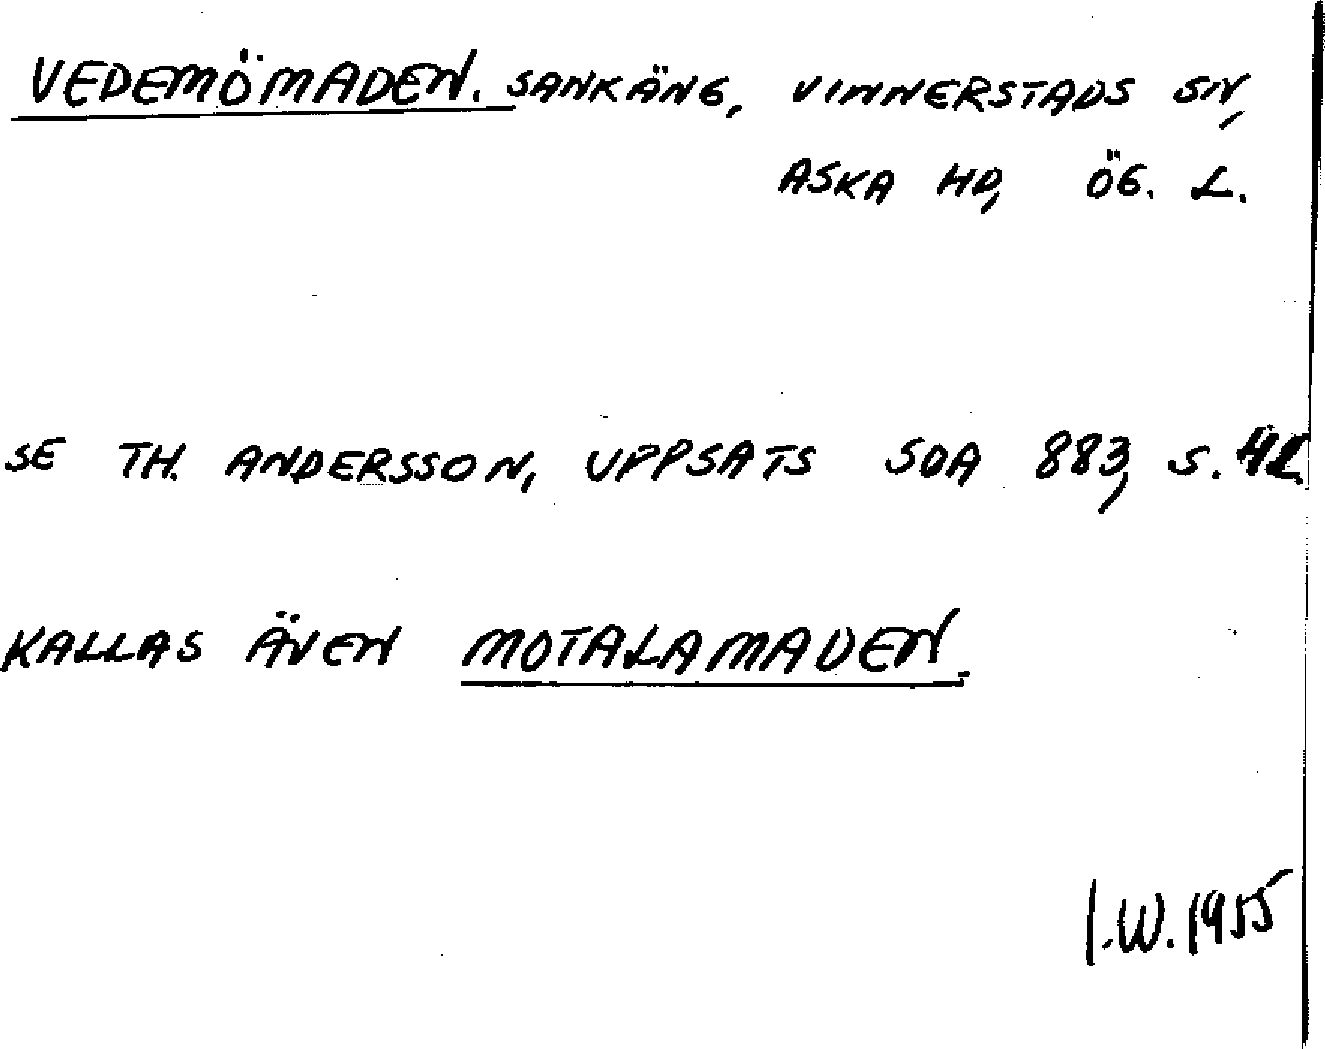 VEDEMÖMADEN. SANKÄNG, VINNERSTADS SN,
ASKA HD, ÖG. L.
SE TH. ANDERSSON, UPPSATS SOA 883, S. 42.
KALLAS ÄVEN MOTALAMADEN.
I.W. 1955